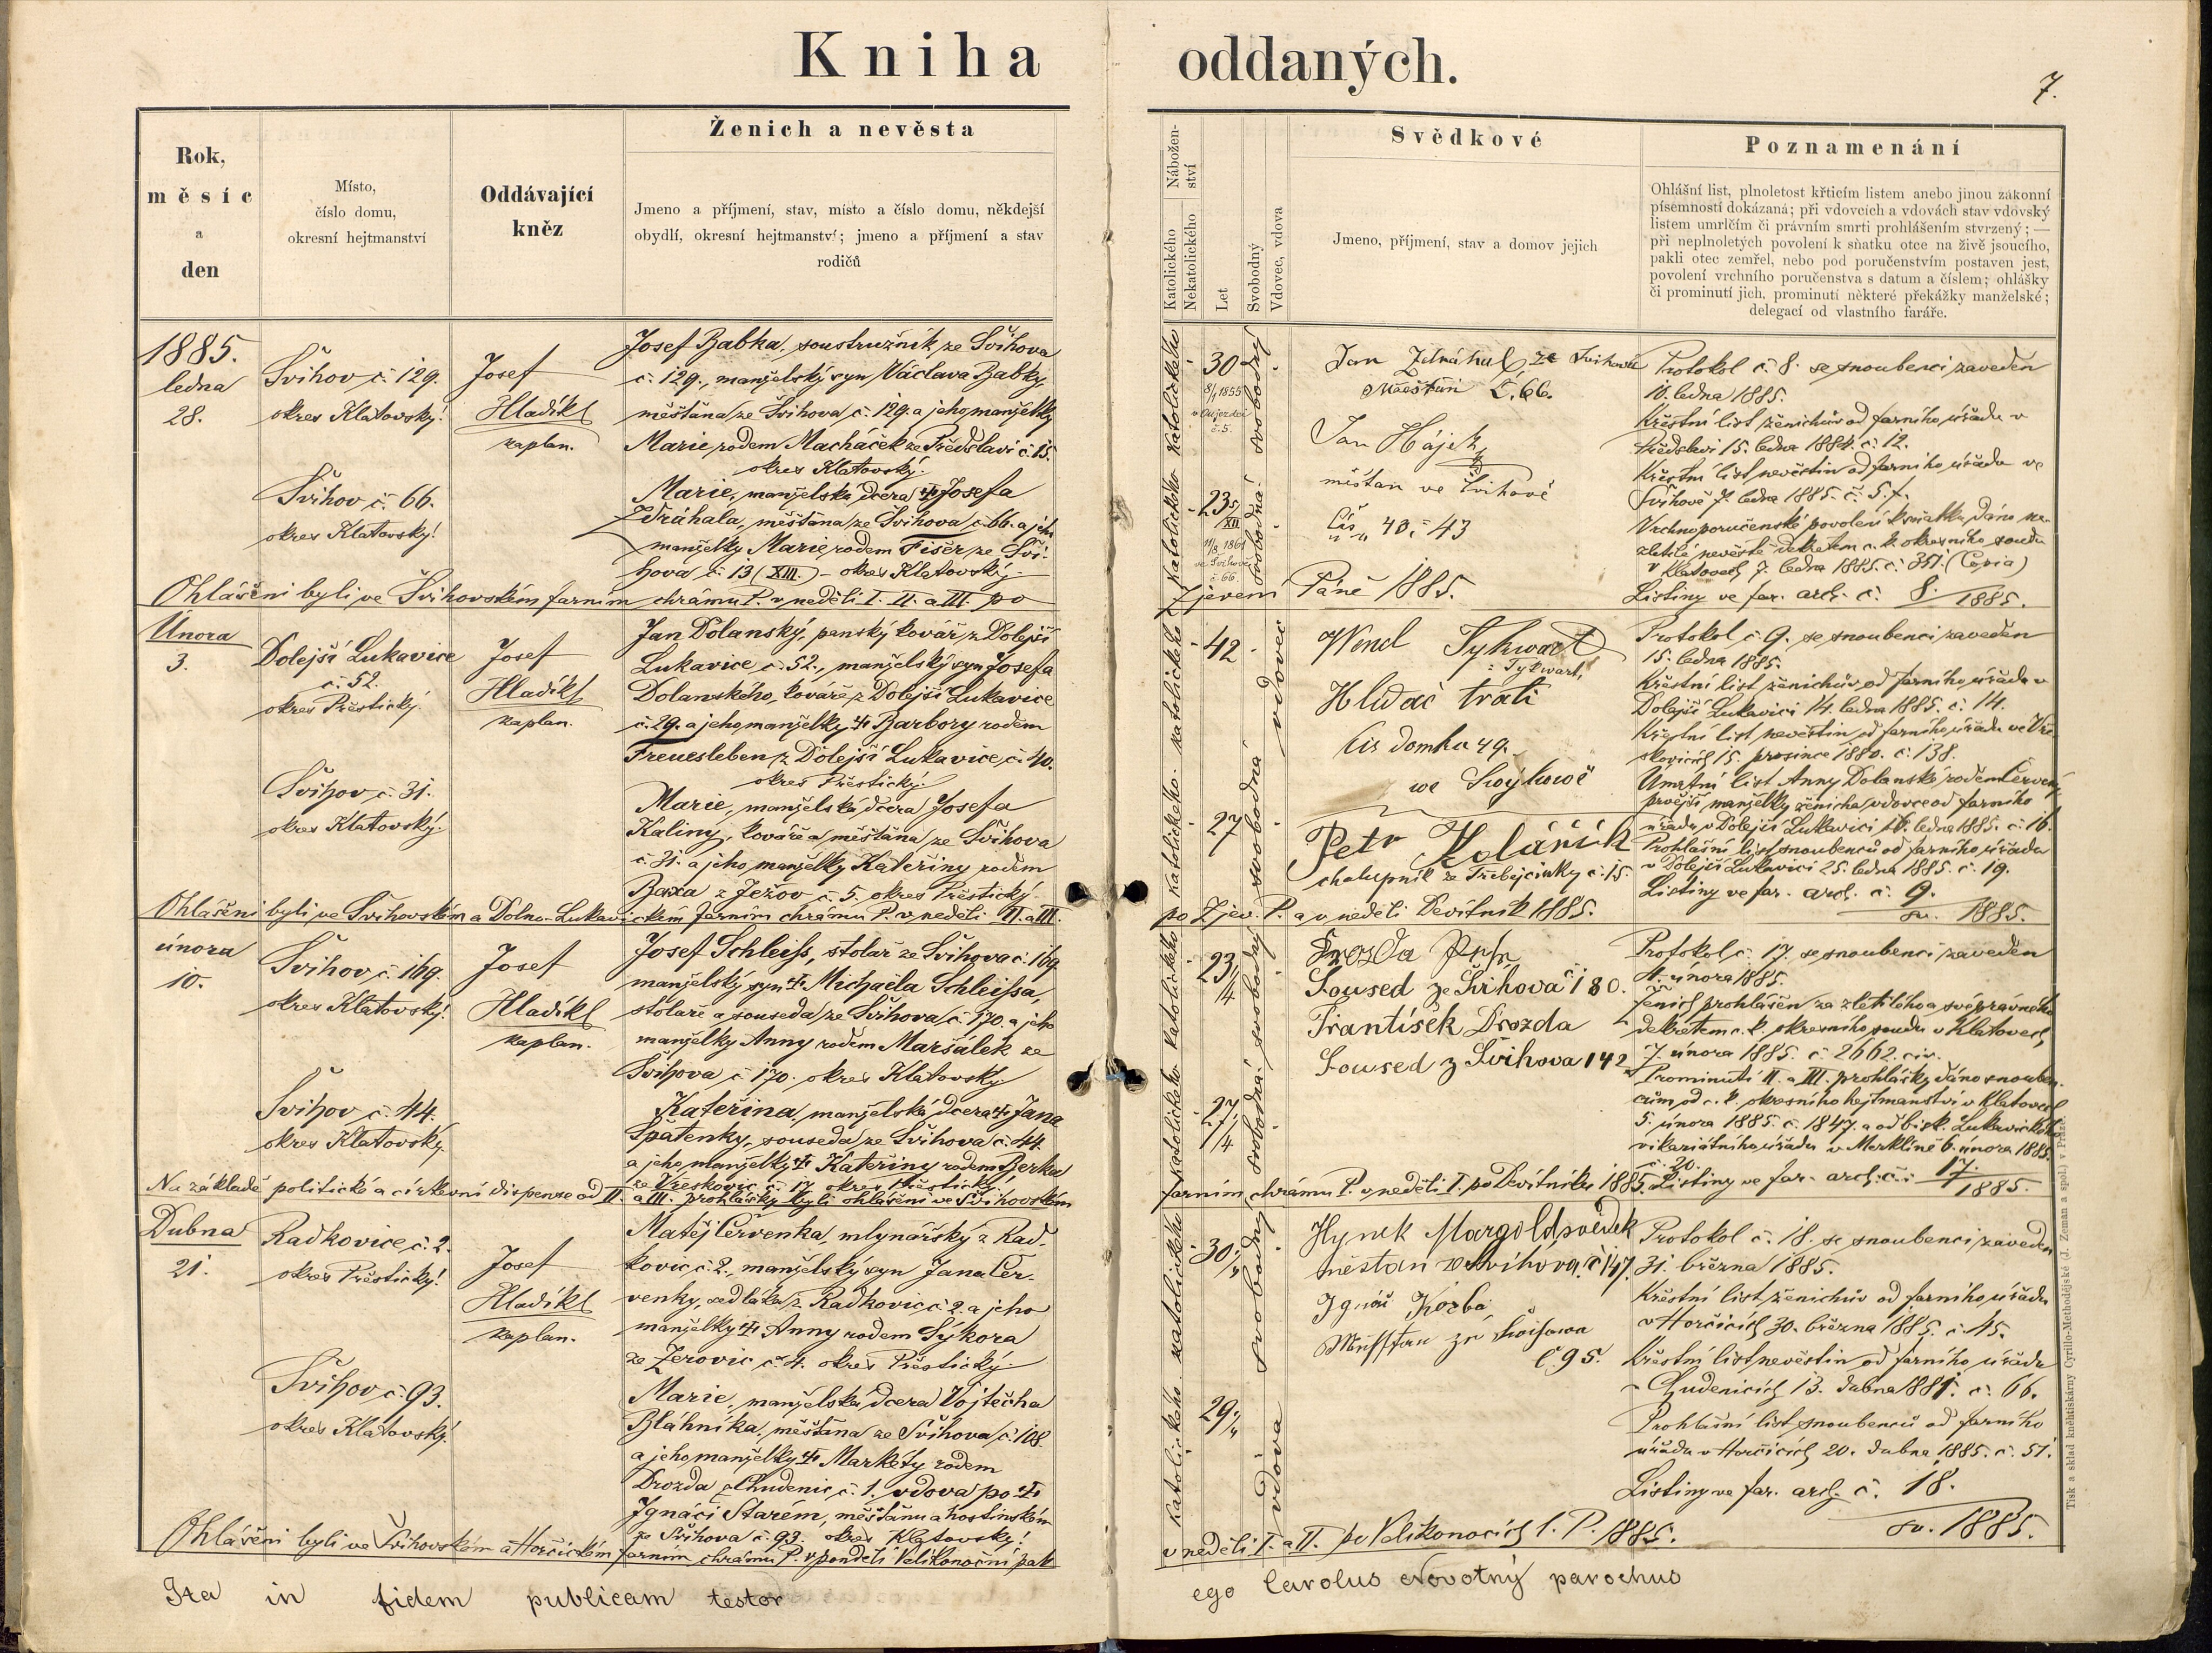 Kniha oddaných.
7.
Rok,
měsíc
a
den
Místo,
číslo domu,
okresní hejtmanství
Oddávající
kněz
Ženich a nevěsta
Jmeno a příjmení, stav, místo a číslo domu, někdejší
obydlí, okresní hejtmanství; jmeno a příjmení a stav
rodičů
Nábožen-
ství
Katolického
Nekatolického
Let
Svobodný
Vdovec, vdova
Svědkové
Jmeno, příjmení, stav a domov jejich
Poznamenání
Ohlášní list, plnoletost křticím listem anebo jinou zákonní
písemností dokázaná; při vdovcích a vdovách stav vdovský
listem umrlčím či právním smrti prohlášením stvrzený; —
při neplnoletých povolení k sňatku otce na živě jsoucího,
pakli otec zemřel, nebo pod poručenstvím postaven jest,
povolení vrchního poručenstva s datum a číslem; ohlášky
či prominutí jich, prominutí některé překážky manželské;
delegací od vlastního faráře.
1885.
ledna
28.
Švihov č. 129.
okres Klatovský.
Josef
Hladíkl
kaplan.
Josef Babka, soustružník ze Švihova
č. 129., manželský syn Václava Babky,
měšťana ze Švihova č. 129. a jeho manželky
Marie, rodem Macháček ze Předslavi č. 15.
okres Klatovský.
Švihov č. 66.
okres Klatovský.
Marie, manželská dcera † Josefa
Zdráhala, měšťana ze Švihova č. 66. a jeho
manželky Marie, rodem Fišer ze Švi-
hova č. 13 (XIII.) – okres Klatovský.
katolického
30
8/1 1855
v Oujezdci
č. 5.
svobodný
katolického
23 5/XII
11/8 1861
ve Švihově
č. 66.
svobodná
Jan Zdráhal, ze Švihova
Měšťan č. 66.
Jan Hájek
měštan ve Švihově
Čís. 40. – 43
Protokol č. 8. se snoubenci zaveden
10. ledna 1885.
Křestní list ženichův od farního úřadu v
Předslavi 15. ledna 1884. č. 12.
Křestní list nevěstin od farního úřadu ve
Švihově 7. ledna 1885. č. 5.
Vrchnoporučenské povolení k sňatku dáno ne-
zletilé nevěstě dekretem c. k. okresního soudu
v Klatovech 7. ledna 1885. č. 351. (Copia)
Listiny ve far. arch. č. 8./1885.
Ohlášeni byli ve Švihovském farním chrámu P. v neděli I. II. a III. po Zjevení Páně 1885.
Února
3.
Dolejší Lukavice
č. 52.
okres Přeštický.
Josef
Hladíkl
kaplan.
Jan Dolanský, panský kovář z Dolejší
Lukavice č. 52., manželský syn Josefa
Dolanského, kováře z Dolejší Lukavice
č. 29. a jeho manželky † Barbory rodem
Freuesleben z Dolejší Lukavice č. 40.
okres Přeštický.
Švihov č. 31.
okres Klatovský.
Marie, manželská dcera Josefa
Kaliny, kováře a měšťana ze Švihova
č. 31. a jeho manželky Kateřiny rodem
Baxa z Ježov č. 5. okres Přeštický.
katolického
42
vdovec
katolického
27
svobodná
Wencl Tykwart
: Tykwart,
Hlídač trati
čís domku 49.
we Swýhowě
Petr Kolářík
chalupník ze Třebejcinky č. 15.
Protokol č. 9. se snoubenci zaveden
15. ledna 1885.
Křestní list ženichův od farního úřadu v
Dolejší Lukavici 14. ledna 1885. č. 14.
Křestní list nevěstin od farního úřadu ve Vře-
skovicích 15. prosince 1880. č. 138.
Úmrtní list Anny Dolanské rodem Červený
prvější manželky ženicha, vdovce od farního
úřadu v Dolejší Lukavici 16. ledna 1885. č. 16.
Prohlašní list snoubenců od farního úřadu
v Dolejší Lukavici 25. ledna 1885. č. 19.
Listiny ve far. arch. č. 9.
sv. 1885.
Ohlášeni byli ve Švihovském a Dolno-Lukavickém farním chrámu P. v neděli II. a III. po Zjev. P. a v neděli Devítník 1885.
února
10.
Švihov č. 169.
okres Klatovský.
Josef
Hladíkl
kaplan.
Josef Schleiss, stolař ze Švihova č. 169
manželský syn † Michaela Schleissa,
stolaře a souseda ze Švihova č. 170. a jeho
manželky Anny rodem Maršálek ze
Švihova č. 170. okres Klatovský.
Švihov č. 44.
okres Klatovský.
Kateřina, manželská dcera † Jana
Špatenky, souseda ze Švihova č. 44.
a jeho manželky † Kateřiny rodem Berka
ze Vřeskovic č. 17 okres Přeštický
katolického
23 1/4
svobodný
katolického
27 1/4
svobodná
Drozda
Soused ze Švihova č 180.
František Drozda
Soused z Švihova 142
Protokol č. 17. se snoubenci zaveden
4. února 1885.
Ženich prohlášen za zletilého a svéprávného
dekretem c. k. okresního soudu v Klatovech
7. února 1885. č. 2662. civ.
Prominutí II. a III. prohlášky dáno snouben-
cům od c. k. okresního hejtmanství v Klatovech
5. února 1885. č. 1847. a od bisk. Lukavického
vikariátního úřadu v Merklíně 6. února 1885.
č. 20.
Listiny ve far. arch. č.: 17./1885.
Na základě politické a církevní dispense od II. a III. prohlášky byli ohlášeni ve Švihovském farním chrámu P. v neděli I. po Devítníku 1885.
Dubna
21.
Radkovice č. 2.
okres Přeštický.
Josef
Hladíkl
kaplan.
Matěj Červenka, mlynářský z Rad-
kovic č. 2., manželský syn Jana Čer-
venky, sedláka z Radkovic č. 2. a jeho
manželky † Anny rodem Sýkora
ze Žerovic č. 4. okres Přeštický.
Švihov č. 93.
okres Klatovský.
Marie, manželská dcera Vojtěcha
Bláhníka, měšťana ze Švihova č. 108.
a jeho manželky † Markéty rodem
Drozda z Chudenic č. 1. vdova po †
Ignáci Starém, měšťanu a hostinském
ze Švihova č. 93. okres Klatovský.
katolického
30 1/4
svobodný
katolického
29 1/4
vdova
Hynek Margold svědek
měštan ze Švihova č 147.
Ignác Kozba
ze
č. 95.
Protokol č. 18. se snoubenci zaveden
31. března 1885.
Křestní list ženichův od farního úřadu
v Horčicích 30. března 1885. č. 45.
Křestní list nevěstin od farního úřadu
v Chudenicích 13. dubna 1881. č. 66.
Prohlašní list snoubenců od farního
úřadu v Horčicích 20. dubna 1885. č. 51.
Listiny ve far. arch. č. 18.
sv. 1885.
Ohlášeni byli ve Švihovském a Horčickém farním chrámu P. v pondělí Velikonoční pak v neděli I. a II. po Velikonocích l. P. 1885.
Ita in fidem publicam testor ego Carolus Novotný parochus
Tisk a sklad knihtiskárny Cyrillo-Methodějské (J. Zeman a spol.) v Praze.